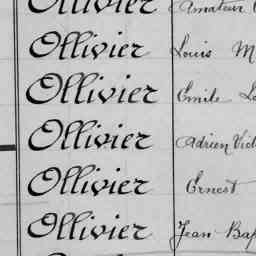 Ollivier Amateur
Ollivier Louis M
Ollivier Emile Lo
Ollivier Adrien Vict
Ollivier Ernest
Ollivier Jean Bap